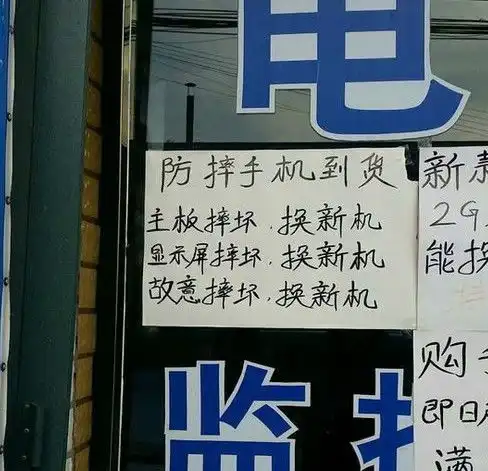 电
防摔手机到货
主板摔坏.换新机
显示屏摔坏.换新机
故意摔坏.换新机
新款
2G
能换
购
即日
满
监